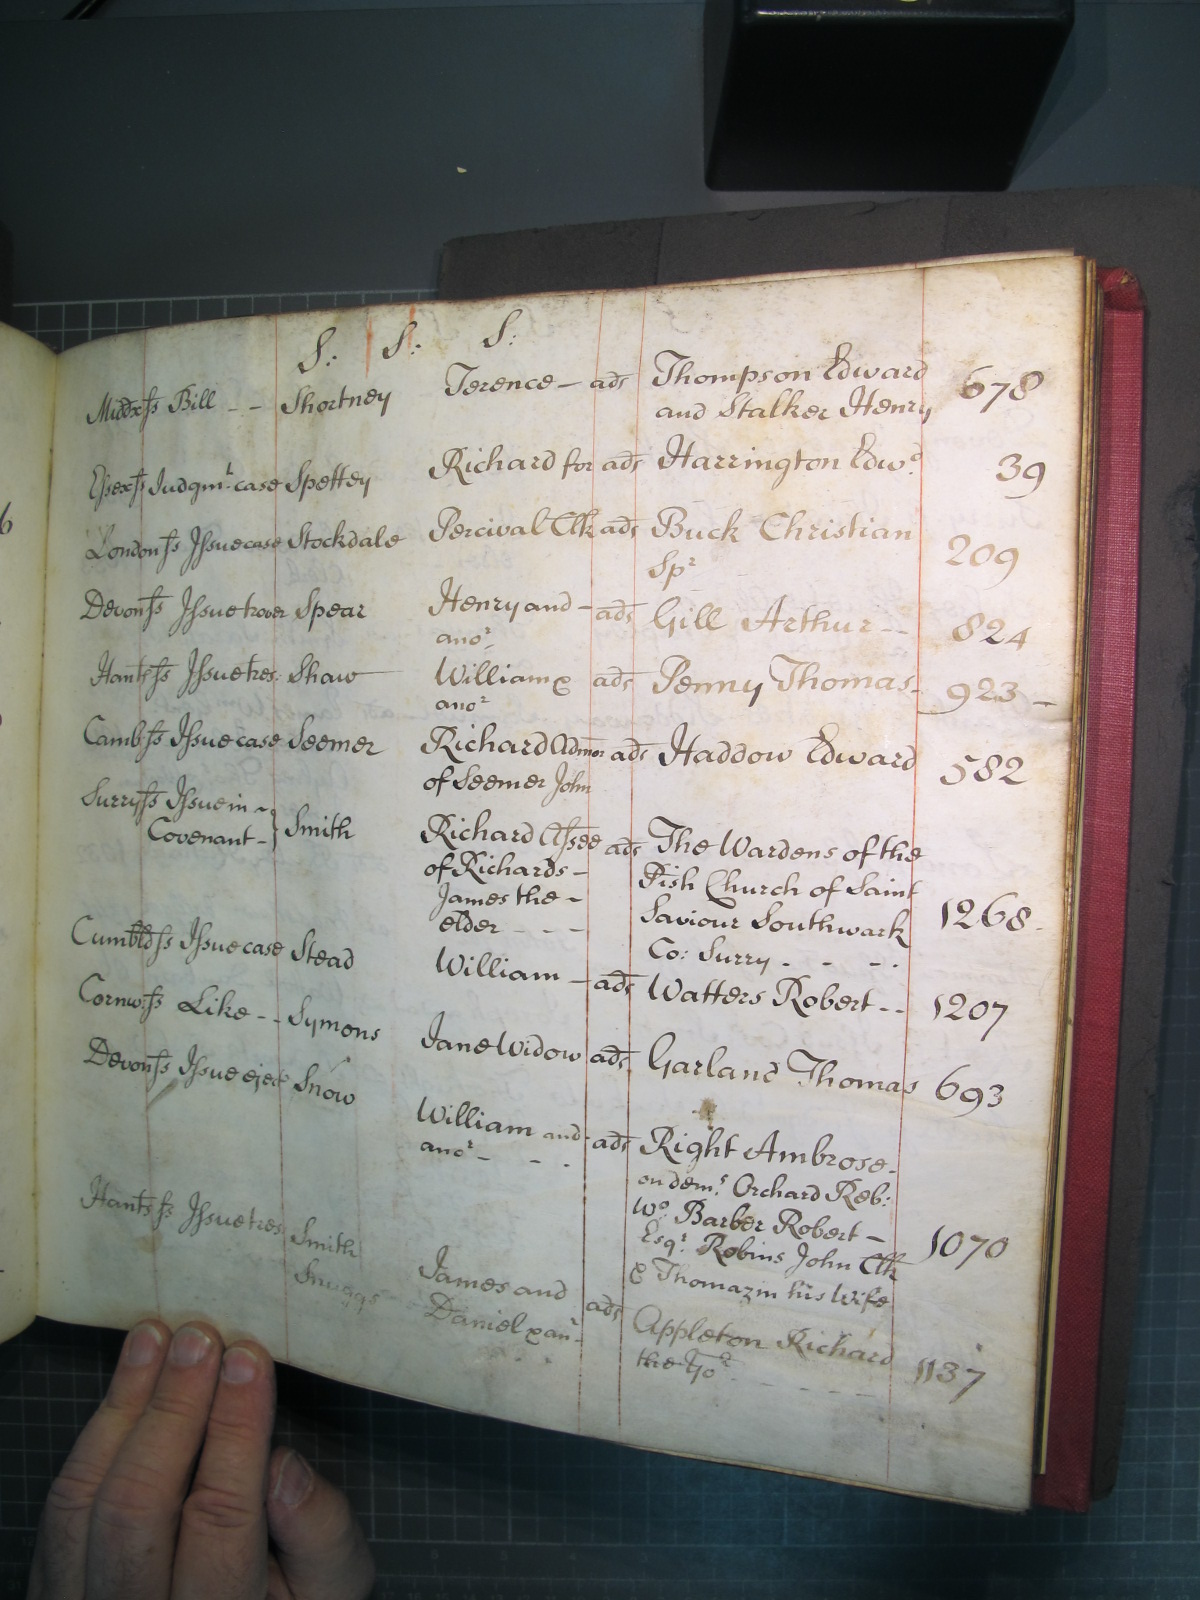 S: S: S:
Middxs ſs Bill - - Shortney Terence - ads Thompson Edward 678
and Stalker Henry
Eſsex ſs Judgmt. case Spettey Richard for ads Harrington Edwd. 39
London ſs Iſsue case Stockdale Percival Clk ads Buck Christian 209
Spr
Devon ſs Iſsue trover Spear Henry and - ads Gill Arthur - - 824
anor.
Hants ſs Iſsue tres: Shaw William & ads Penny Thomas - 923 -
anor
Camb ſs Iſsue case Seemer Richard Admor ads Haddow Edward 582
of Seemer John
Surry ſs Iſsue in ~
Covenant - } Smith Richard Aſsee ads The Wardens of the
of Richards - Pish Church of Saint
James the - Saviour Southwark 1268 -
elder - - - Co: Surry - - - .
Cumbld ſs Iſsue case Stead William - ads Watters Robert - - 1207
Cornw. ſs Like - - Symons Jane Widow ads Garland Thomas 693
Devon ſs Iſsue eject Snow William and ads Right Ambrose -
anor - - - . on dems. Orchard Reb:
Wo. Barber Robert -
Esqr. Robins John Clk 1070
& Thomazin his Wife
Hants ſs Iſsue tres Smith James and ads Appleton Richard 1137
Snuggs Daniel & anr. - the Yor - - - - -
6